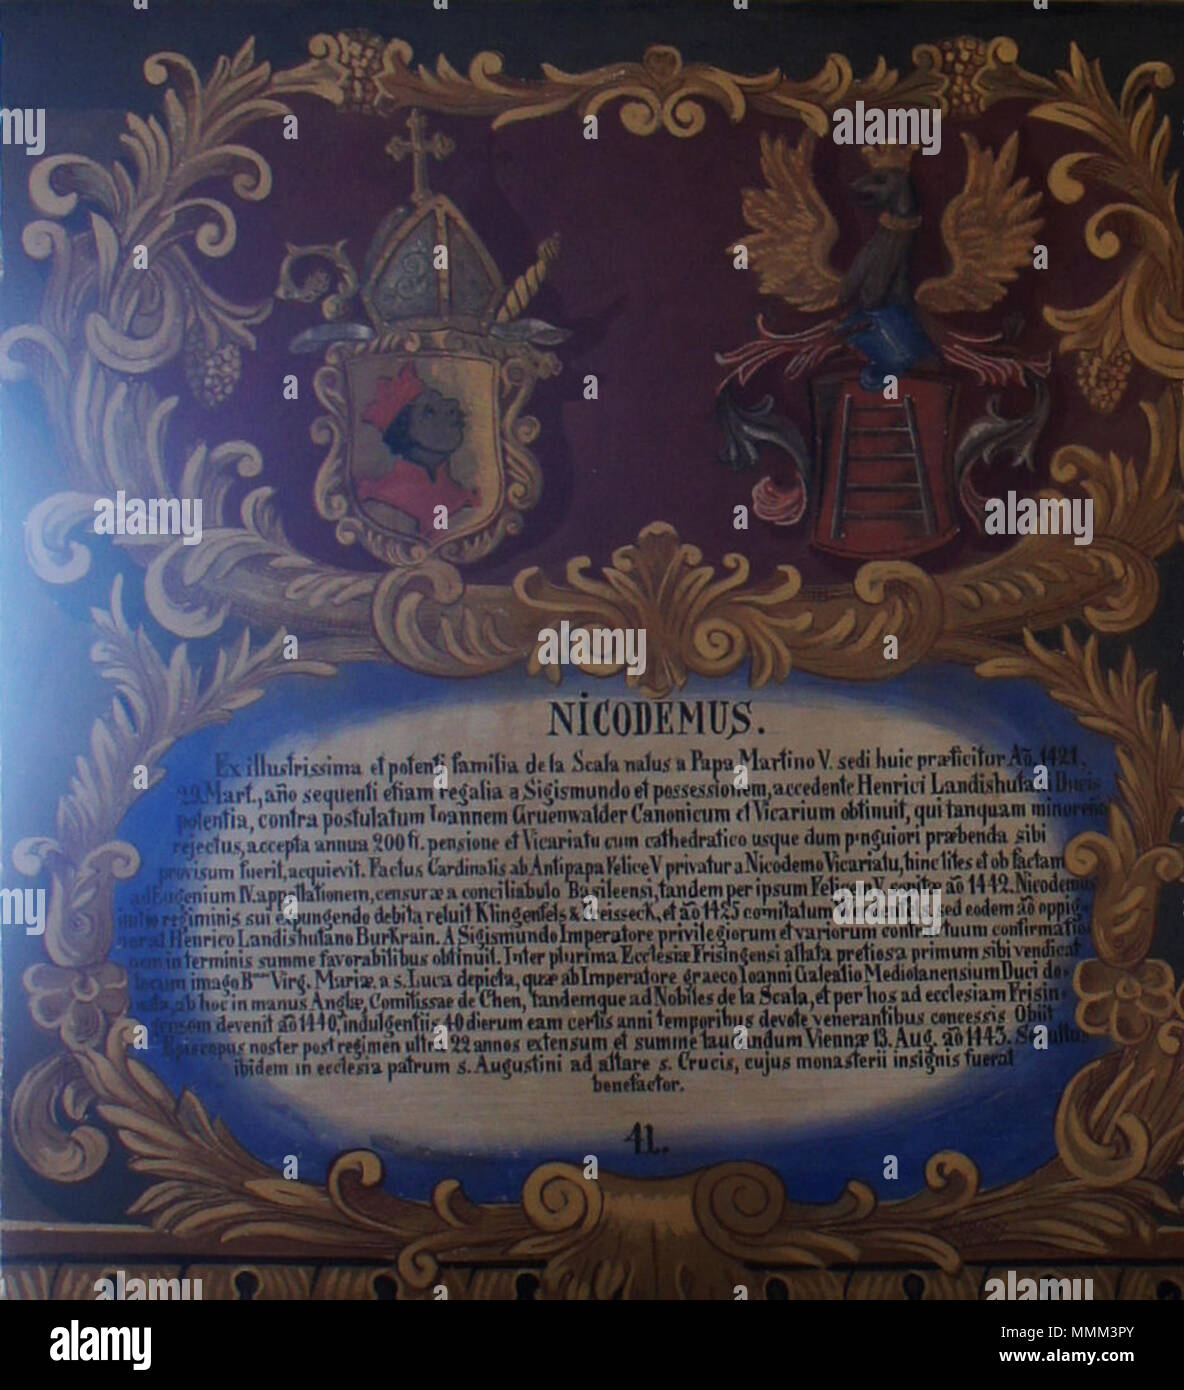 NICODEMUS.
Ex illustrissima et potenti familia de la Scala natus a Papa Martino V. sedi huic præficitur Aō. 1421,
29. Mart., año sequenti etiam regalia a Sigismundo et possessionem, accedente Henrici Landishutani Ducis
potentia, contra postulatum Ioannem Gruenwalder Canonicum et Vicarium obtinuit, qui tanquam
rejectus, accepta annua 200 fl. pensione et Vicariatu cum cathedratico usque dum pinguiori præbenda sibi
provisum fuerit, acquievit. Factus Cardinalis ab Antipapa Felice V privatur a Nicodemo Vicariatu, hinc lites et ob factam
ad Eugenium IV. appellationem, censuræ a conciliabulo Basileensi, tandem per ipsum Felicem V. aō 1442. Nicodemus
initio regiminis sui expungendo debita reluit Klingenfels & et aō 1425 comitatum Werdenfels, sed eodem aō oppig-
Henrico Landishutano Burkrain. A Sigismundo Imperatore privilegiorum et variorum contractuum
in terminis summe favorabilibus obtinuit. Inter plurima Ecclesiæ Frisingensi allata pretiosa primum sibi vendicat
locum imago B Virg. Mariæ a s. Luca depicta, quæ ab Imperatore græco Ioanni Galeatio Mediolanensium Duci do-
nata, ab hoc in manus Anglæ, Comitissae de Chen, tandemque ad Nobiles de la Scala, et per hos ad ecclesiam Frisin-
gensem devenit aō 1440, indulgentiis 40 dierum eam certis anni temporibus devote venerantibus concessis Obiit
Episcopus noster post regimen ultra 22 annos extensum et summe laudandum Viennæ 13. Aug. aō 1443. Sepultus
ibidem in ecclesia patrum s. Augustini ad altare s. Crucis, cujus monasterii insignis fuerat
benefactor.
41.
alamy
alamy
alamy
alamy
alamy
alamy
alamy
alamy
Image ID: MMM3PY
www.alamy.com